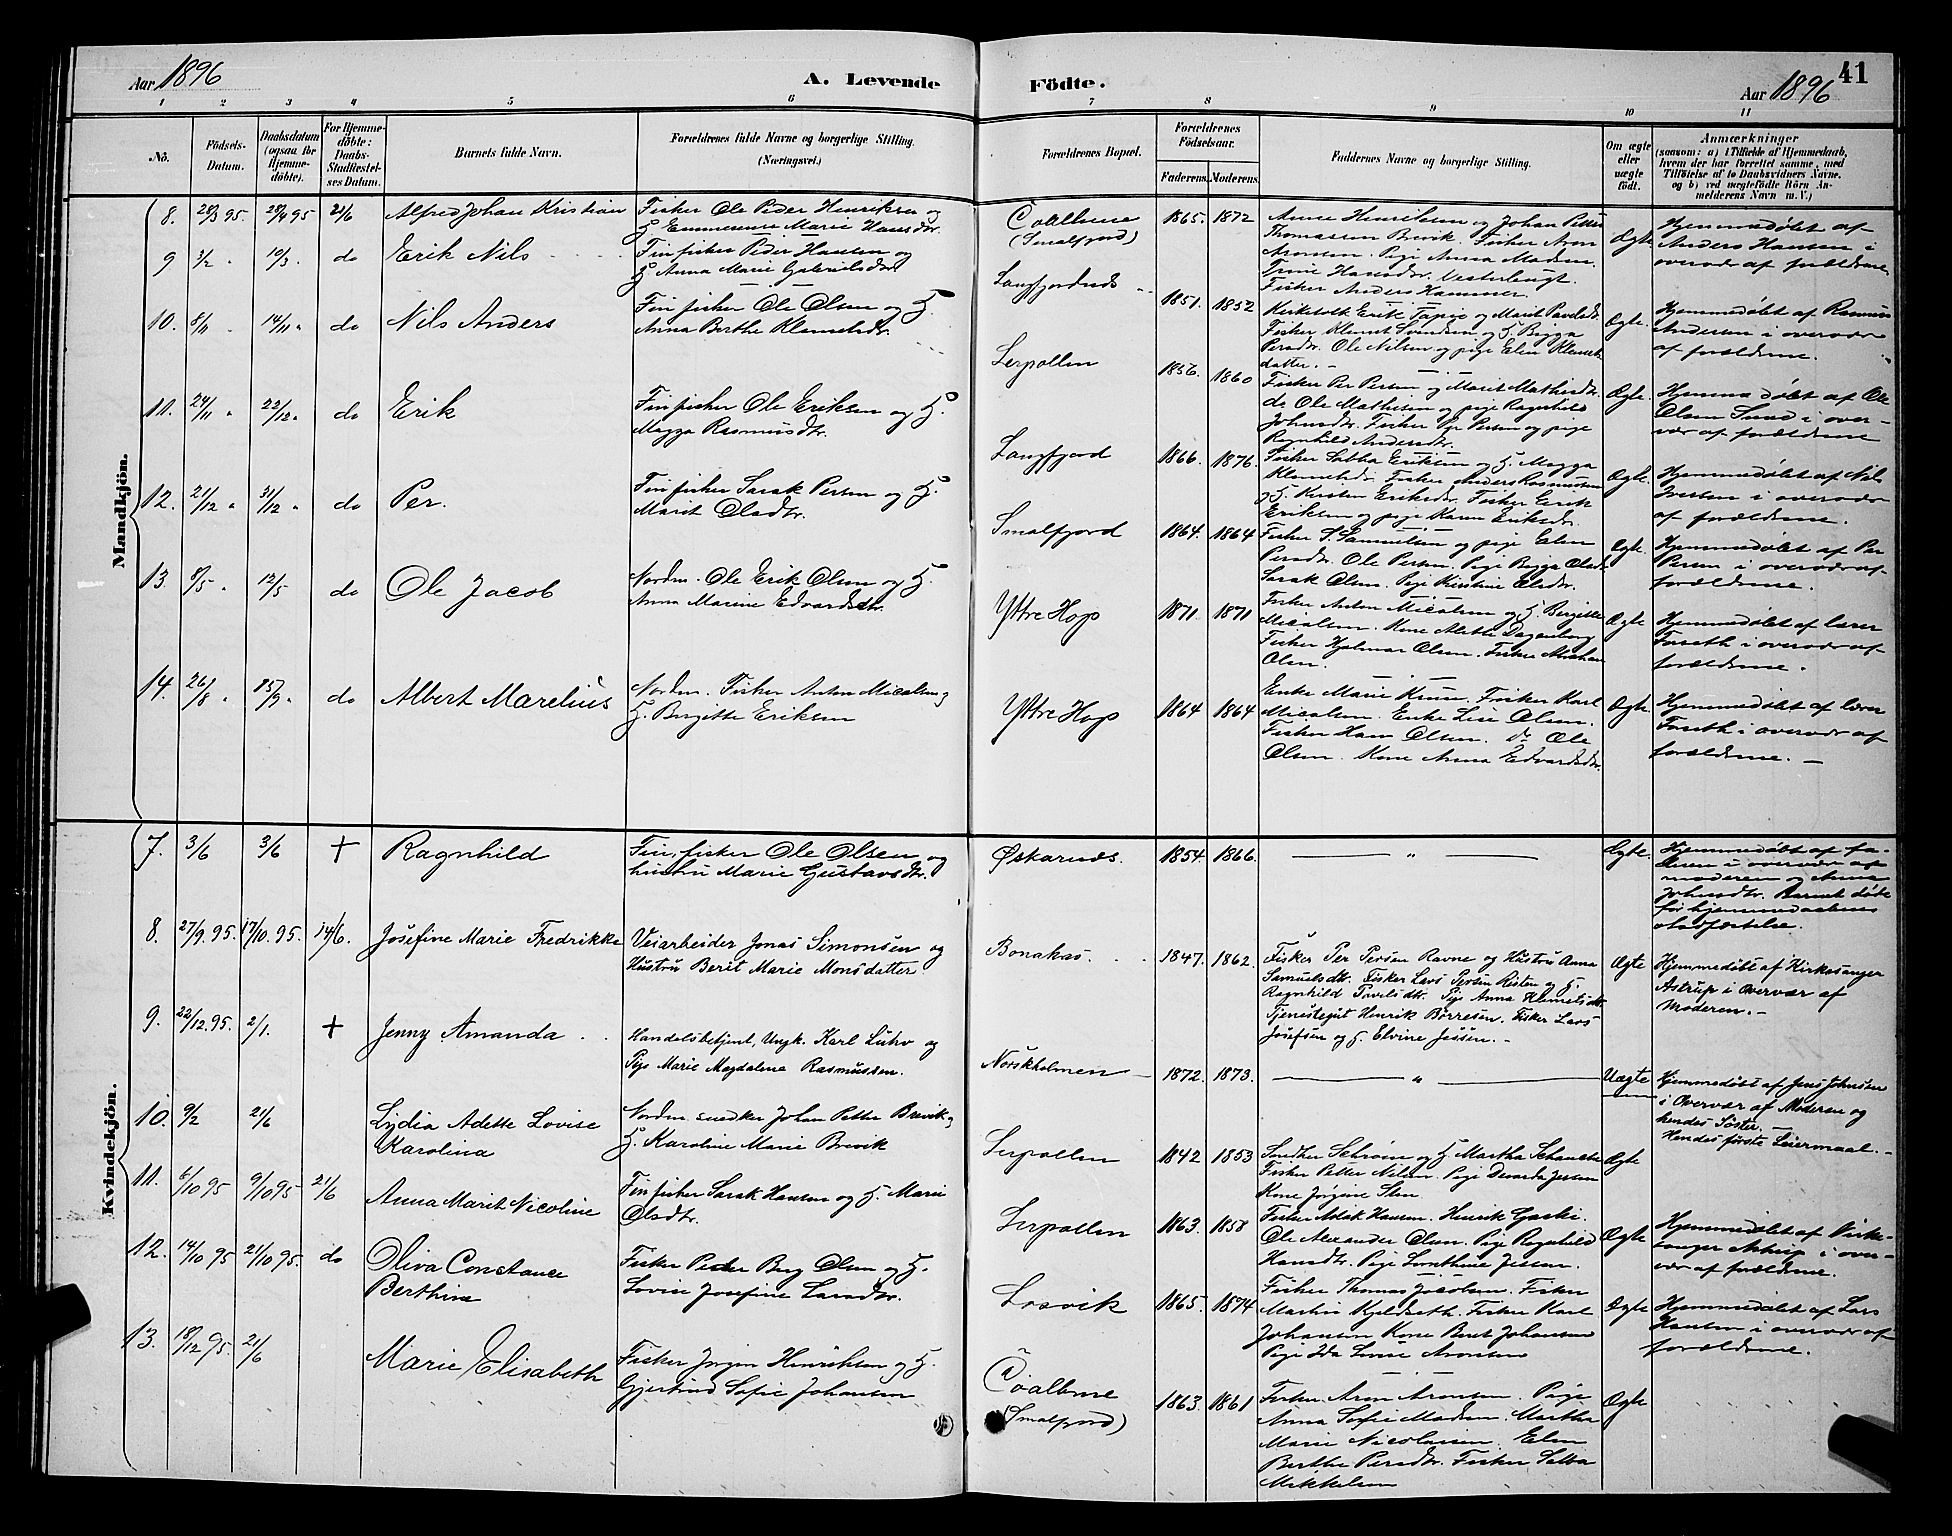 Aar 1896
A. Levende
Födte.
Aar 1896
41
1 2 3 4 5 6 7 8 9 10 11
No.
Födsels-
Datum.
Daabsdatum
(ogsaa for
Hjemme-
döbte).
For Hjemme-
döbte:
Daabs-
Stadfæstel-
ses Datum.
Barnets fulde Navn.
Forældrenes fulde Navne og borgerlige Stilling.
(Næringsvei.)
Forældrenes Bopæl.
Forældrenes
Födselsaar.
Faderens. Moderens.
Faddernes Navne og borgerlige Stilling.
Om ægte
eller
uægte
födt.
Anmærkninger
(saasom: a) i Tilfælde af Hjemmedaab,
hvem der har forrettet samme, med
Tilföielse af to Daabsvidners Navne,
og b) ved uægtefödte Börn An-
melderens Navn m. V.)
Mandkjön.
8. 95. 95 21/6 Alfred Johan Kristian
Fisker Ole Peder Henriksen og
H. Marie Hansdtr.
(Smalfjord)
1865. 1872
Anne Henriksen og Johan Petter
Thomassen Brevik. Fisker Aron
Aronsen. Pige Anna Madsen.
Trine Hansdtr. Vesterbugt.
Fisker Anders Hammer.
Ægte
Hjemmedøbt af
Anders Hansen i
overvær af forældrene
9 3/2 10/3 do Erik Nils
Finfisker Peder Hansen og
H. Anna Marie Gabrielsdtr.
Langfjordnæs
1851. 1852
Kirketolk Erik Tapio og Marit Pavelsdtr.
Fisker Klemet Svendsen og H. Bigga
Persdtr. Ole Nilsen og pige Elen Klemets
datter.
Ægte.
Hjemmedøbt af Rasmus
Andersen i overvær
af forældrene.
10. 8/11 14/11 do Nils Anders
Finfisker Ole Olsen og H.
Anna Berthe Klemetsdtr.
Lerpollen
1856. 1860
Fisker Per Persen og Marit Mathisdtr.
do Ole Mathisen og pige Ragnhild
Johnsdtr. Fisker Per Persen og pige
Ragnhild Andersdtr.
Ægte.
Hjemmedøbt af Ole
Olsen Sund i over-
vær af forældrene
11. 24/11 22/12 do Erik
Finfisker Ole Eriksen og H.
Magga Rasmusdtr.
Langfjord
1866. 1876.
Fisker Sabba Eriksen og H. Magga
Klemetsdtr. Fisker Anders Rasmussen
og H. Kirsten Eriksdtr. Fisker Erik
Eriksen og pige Karen Eriksdtr.
Ægte.
Hjemmedøbt af Nils
Iversen i overvær
af forældrene.
12. 21/12 31/12 do Per.
Finfisker Sarak Persen og H.
Marit Olsdtr.
Smalfjord
1864. 1864
Fisker S. Samuelsen og pige Elen
Persdtr. Ole Persen. Pige Bigga Olsdtr.
Sarak Olsen. Pige Kirstine Olsdtr.
Ægte.
Hjemmedøbt af Per
Persen i overvær af
forældrene.
13. 8/5 12/5 do Ole Jacob
Nordm. Ole Erik Olsen og H.
Anna Marine Edvardsdtr.
Yttre Hop
1871. 1871
Fisker Anton Micalsen og H. Birgitte
Micalsen. Kone Alette Dagenborg
Fisker Hjalmar Olsen. Fisker Abraham
Olsen.
Ægte
Hjemmedøbt af lærer
Forseth i overvær af
forældrene.
14. 26/8 15/9 do Albert Marelius
Nordm. Fisker Anton Micalsen og
H. Birgitte Eriksen
Yttre Hop
1864 1864
Enke Marie Fisker Karl
Micalsen. Enke Lise Olsen.
Fisker Hans Olsen. do Ole
Olsen. Kone Anna Edvardsdtr.
Ægte.
Hjemmedøbt af lærer
Forseth i overvær af
forældrene.
Kvindekjön.
7. 3/6 3/6 + Ragnhild
Finfisker Ole Olsen og
hustru Marie Gustavsdtr.
Øskarnæs.
1854. 1866.
Ægte.
Hjemmedøbt af fa-
deren i overvær af
moderen og Anna
Johnsdtr. Barnet døde
før hjemmedaabens
stadfæstelse.
8. 27/9.95. 17/10.95. 14/6. Josefine Marie Fredrikke
Veiarbeider Jonas Simonsen og
Hustru Berit Marie Monsdatter
Bonakas.
1847. 1862.
Fisker Per Persen Ravne og Hustru Anna
Samuelsdtr. Fisker Lars Persen Risten og H.
Ragnhild Povelsdtr. Pige Anna Klemetsdtr.
Tjenestegut Henrik Børresen. Fisker Lars
Josefsen og H. Elvine Jessen.
Ægte
Hjemmedøbt af Kirkesanger
Astrup i Overvær af
Moderen.
9. 22/12.95. 2/1. + Jenny Amanda
Handelsbetjent, Ungk. Karl Luhr og
Pige Marie Magdalena Rasmussen.
Norskholmen
1872. 1873.
Uægte
Hjemmedøbt af Jens Johnsen
i Overvær af Moderen og
hendes Søster.
Hendes første Leiermaal.
10. 9/2 21/6 Lydia Adette Lovise
Karolina
Nordm. snedker Johan Petter Brevik og
H. Karoline Marie Brevik
Lerpollen
1842 1853
Snedker Schrøin og H. Martha Schancke
Fisker Petter Nilsen. Pige Jessen
Kone Jørgine Sten
Ægte
11. 6/10 95 9/10 95 21/6 Anna Marit Nicoline
Finfisker Sarak Hansen og H. Marie
Olsdtr.
Lerpollen
1863. 1858
Fisker Aslak Hansen. Henrik Gaski.
Ole Alexander Olsen. Pige Ragnhild
Hansdtr. Pige Jessen.
Ægte
Hjemmedøbt af Kirke-
sanger Astrup i over-
vær af forældrene.
12. 14/10 95 21/10 95. do Oliva Constance
Berthine
Fisker Peder Berg Olsen og H.
Lovise Josefine Larsdtr.
Losvik
1865. 1874
Fisker Thomas Jacobsen. Fisker
Martin Kjeldseth. Fisker Karl
Johansen Kone Berit Johansen
Pige Ida Lovise Aronsen
Ægte
Hjemmedøbt af Lars
Hansen i overvær af
forældrene.
13. 18/12 95 21/6 Marie Elisabeth
Fisker Jørgen Henriksen og H.
Gjertrud Sofie Johansen
(Smalfjord)
1863. 1861
Fisker Aron Aronsen. Pige
Anna Sofie Madsen. Martha
Marie Nicolaisen. Elen
Berthe Persdtr. Fisker Salba
Mikkelsen
Ægte